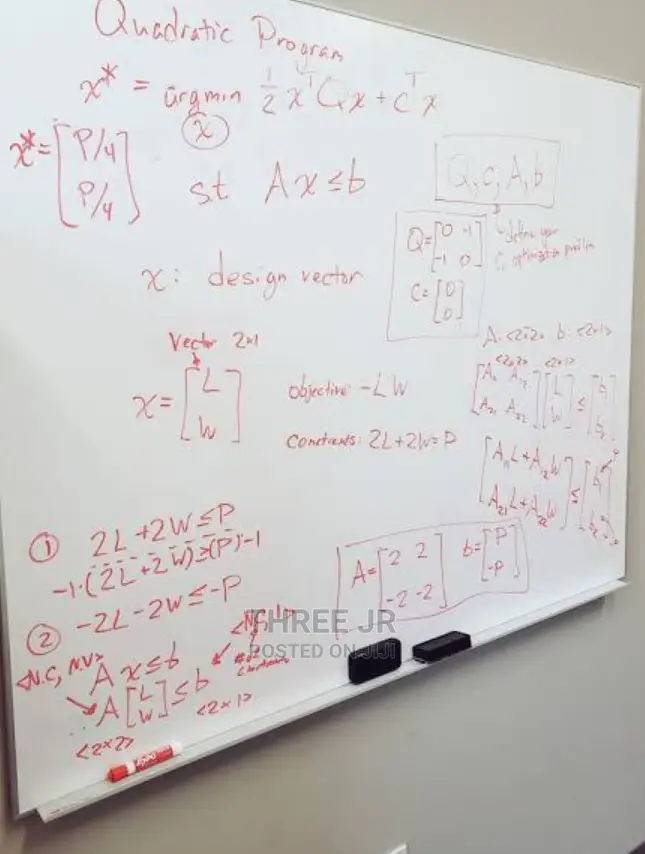 Quadratic Program
x* = argmin 1/2 x^T Q x + c^T x
x
x* = [P/4
P/4]
st Ax ≤ b
Q, c, A, b
define your
optimization problem
Q = [0 -1
-1 0]
C = [0
0]
x: design vector
Vector 2x1
x = [L
W]
objective: -LW
Constraints: 2L+2W=P
A: <2x2> b: <2x1>
<2x2> <2x1>
[A₁₁ A₁₂
A₂₁ A₂₂] [L
W] ≤ [b₁
b₂]
[A₁₁L+A₁₂W
A₂₁L+A₂₂W] ≤ [b₁
b₂]
① 2L+2W≤P
-1·(2L+2W)≥(P)·-1
② -2L-2W≤-P
A = [2 2
-2 -2]
b = [P
-P]
<N.C, N.V>
Ax≤b
A[L
W]≤b
<2x2>
<2x1>
# of
constraints
THREE JR
POSTED ON JIJI
EXPO